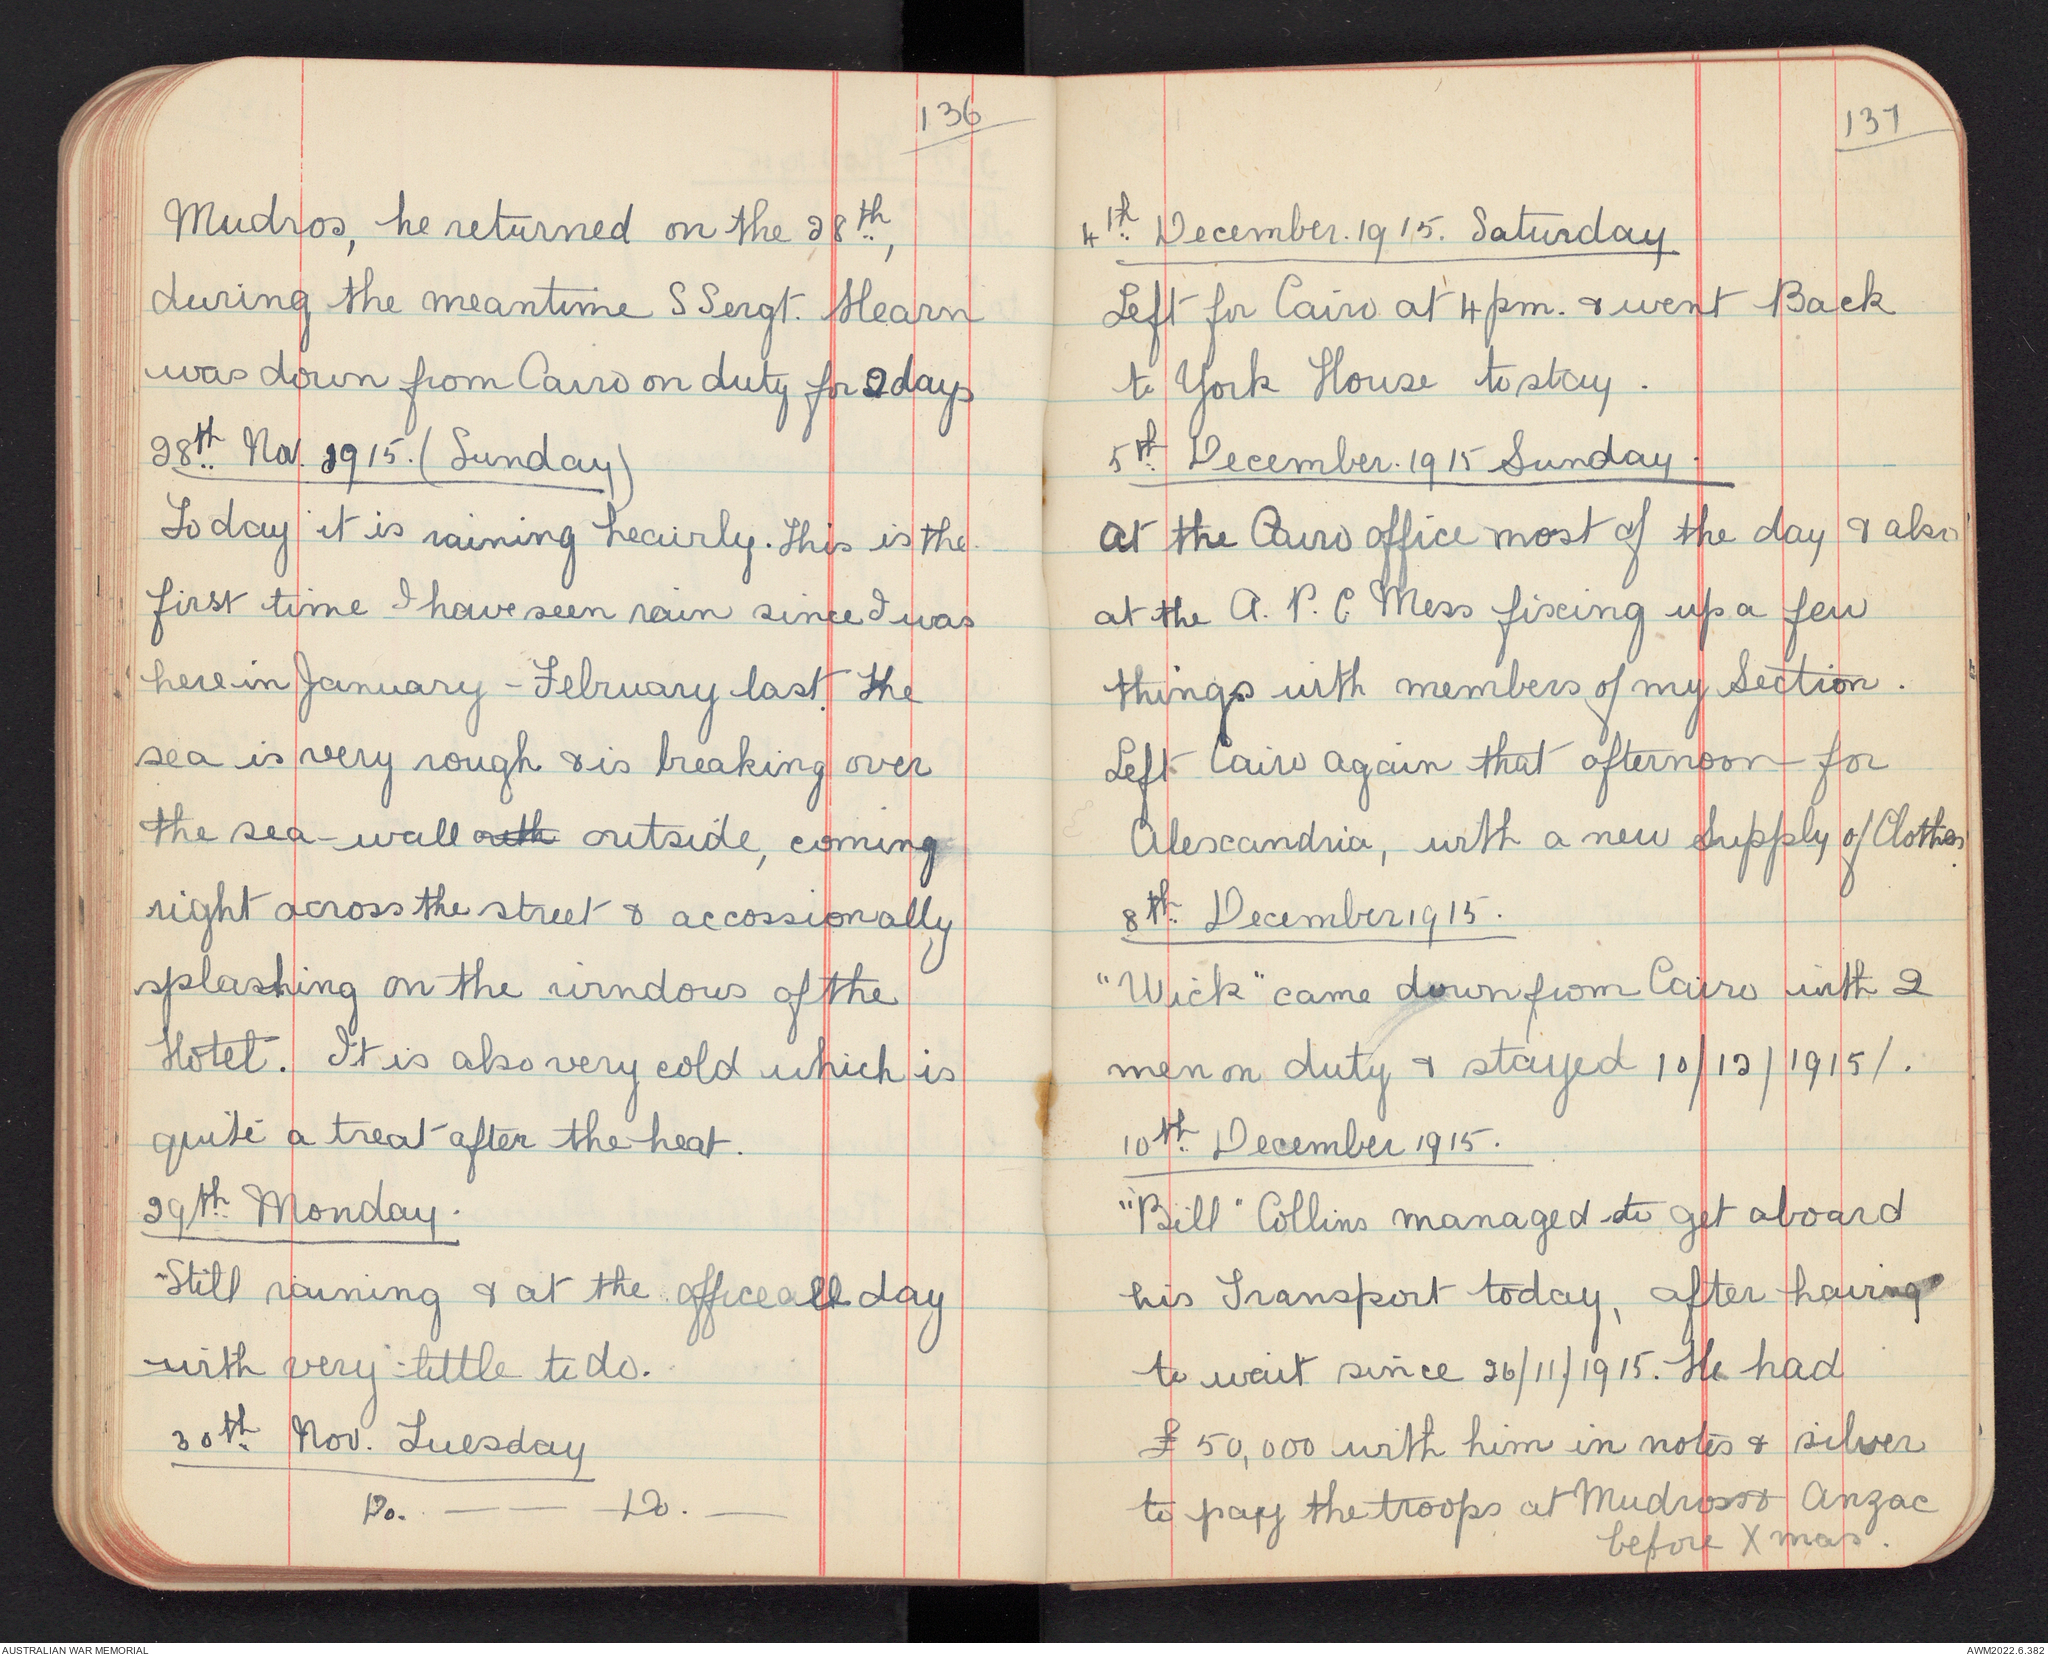 136
Mudros, he returned on the 28th,
during the meantime S Sergt. Hearn
was down from Cairo on duty for 2 days
28th Nov. 1915. (Sunday)
Today it is raining heavily. This is the
first time I have seen rain since I was
here in January - February last. The
sea is very rough & is breaking over
the sea-wall outh outside, coming
right across the street & accossionally
splashing on the windows of the
Hotel. It is also very cold which is
quite a treat after the heat.
29th Monday.
Still raining & at the office all day
with very little to do.
30th Nov. Tuesday
Do. — — Do. —
137
4th December. 1915. Saturday
Left for Cairo at 4 pm. & went Back
to York House to stay.
5th December. 1915 Sunday.
At the Cairo office most of the day & also
at the A. P. C. Mess fixing up a few
things with members of my Section.
Left Cairo again that afternoon for
Alexandria, with a new Supply of Clothes.
8th December 1915.
"Wick" came down from Cairo with 2
men on duty & stayed 10/12/1915/.
10th December 1915.
"Bill" Collins managed to get aboard
his Transport today, after having
to wait since 26/11/1915. He had
£50,000 with him in notes & silver
to pay the troops at Mudros & Anzac
before Xmas.
AUSTRALIAN WAR MEMORIAL
AWM2022.6.382